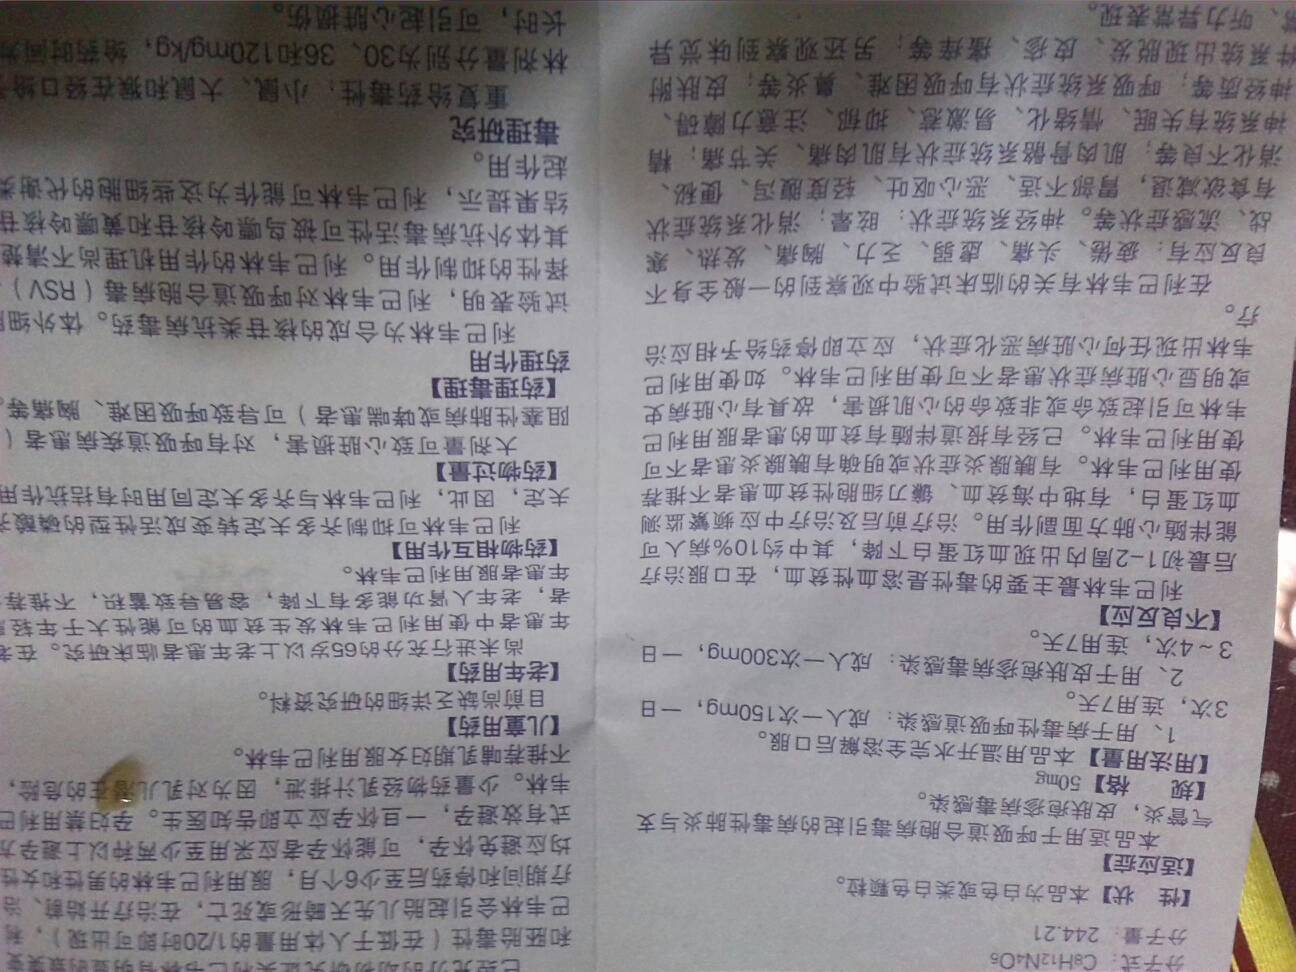 分子式：C8H12N4O5
分子量：244.21
【性 状】本品为白色或类白色颗粒。
【适应症】
本品适用于呼吸道合胞病毒引起的病毒性肺炎与支
气管炎，皮肤疱疹病毒感染。
【规 格】50mg
【用法用量】本品用温开水完全溶解后口服。
1、用于病毒性呼吸道感染：成人一次150mg，一日
3次，连用7天。
2、用于皮肤疱疹病毒感染：成人一次300mg，一日
3~4次，连用7天。
【不良反应】
利巴韦林最主要的毒性是溶血性贫血，在口服治疗
后最初1-2周内出现血红蛋白下降，其中约10%病人可
能伴随心肺方面副作用。治疗前后及治疗中应频繁监测
血红蛋白，有地中海贫血、镰刀细胞性贫血患者不推荐
使用利巴韦林。有胰腺炎症状或明确有胰腺炎患者不可
使用利巴韦林。已经有报道伴随有贫血的患者服用利巴
韦林可引起致命或非致命的心肌损害，故具有心脏病史
或明显心脏病症状患者不可使用利巴韦林。如使用利巴
韦林出现任何心脏病恶化症状，应立即停药给予相应治
疗。
在利巴韦林有关的临床试验中观察到的一般全身不
良反应有：疲倦、头痛、虚弱、乏力、胸痛、发热、寒
战、流感症状等。神经系统症状：眩晕；消化系统症状
有食欲减退，胃部不适、恶心呕吐、轻度腹泻、便秘、
消化不良等；肌肉骨骼系统症状有肌肉痛、关节痛；精
神系统有失眠、情绪化、易激惹、抑郁、注意力障碍、
神经质等；呼吸系统症状有呼吸困难、鼻炎等；皮肤附
件系统出现脱发、皮疹、瘙痒等；另还观察到味觉异
、听力异常表现。
已经充分的动物研究证实利巴韦林有明显的致突变
和胚胎毒性（在低于人体用量的1/20时即可出现），利
巴韦林会引起胎儿先天畸形或死亡，在治疗开始前、治
疗期间和停药后至少6个月，服用利巴韦林的男性和女性
均应避免怀孕，可能怀孕者应采用至少两种以上避孕方
式有效避孕，一旦怀孕应立即告知医生。孕妇禁用利巴
韦林。少量药物经乳汁排泄，因为对乳儿潜在的危险，
不推荐哺乳期妇女服用利巴韦林。
【儿童用药】
目前尚缺乏详细的研究资料。
【老年用药】
尚未进行充分的65岁以上老年患者临床研究。在老
年患者中使用利巴韦林发生贫血的可能性大于年轻患
者，老年人肾功能多有下降，容易导致蓄积，不推荐
年患者服用利巴韦林。
【药物相互作用】
利巴韦林可抑制齐多夫定转变成活性型的磷酸齐
夫定，因此，利巴韦林与齐多夫定同用时有拮抗作用
【药物过量】
大剂量可致心脏损害，对有呼吸道疾病患者（
阻塞性肺病或哮喘患者）可导致呼吸困难、胸痛等。
【药理毒理】
药理作用
利巴韦林为合成的核苷类抗病毒药。体外细胞
试验表明，利巴韦林对呼吸道合胞病毒（RSV）
择性的抑制作用。利巴韦林的作用机理尚不清楚
其体外抗病毒活性可被鸟嘌呤核苷和黄嘌呤核苷
结果提示，利巴韦林可能作为这些细胞的代谢类
起作用。
毒理研究
重复给药毒性：小鼠、大鼠和猴在经口给
林剂量分别为30、36和120mg/kg，给药时间为
长时，可引起心脏损伤。